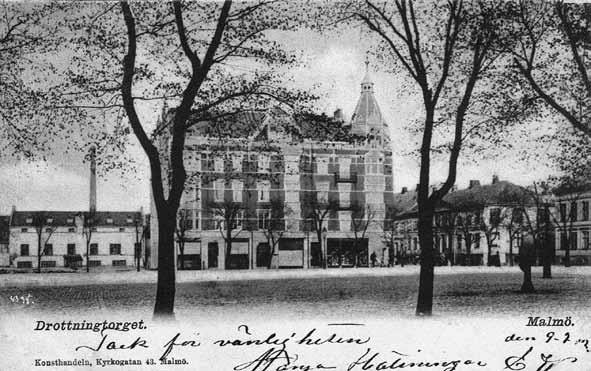 Drottningtorget.
Malmö.
Tack för vänligheten
den 9-2.
Konsthandeln, Kyrkogatan 43. Malmö.
Många Hälsningar